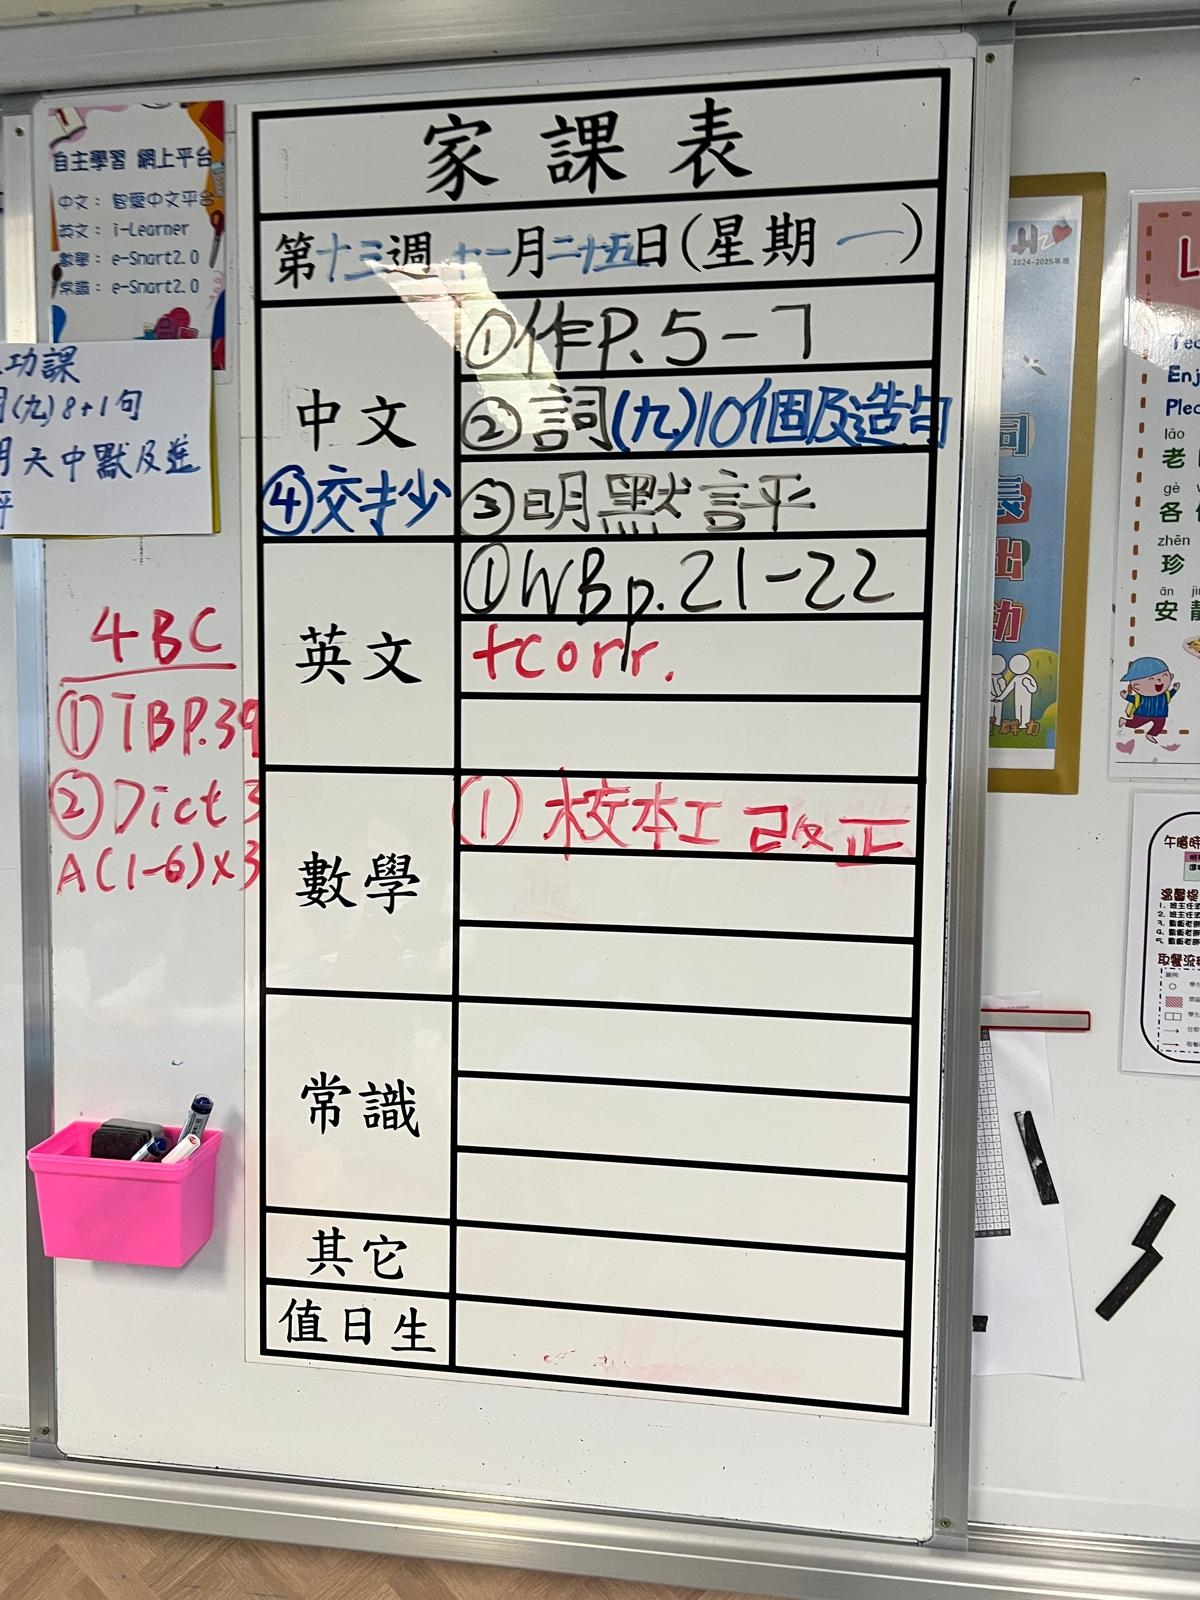 家課表
第十三週 十一月二十五日(星期一)
中文
①作P.5-7
②詞(九)10個及造句
③明默評
④交抄
英文
①WB p.21-22
+corr.
數學
①校本工改正
常識
其它
值日生
自主學習 網上平台
中文：智愛中文平台
英文：i-Learner
數學：e-Smart2.0
常識：e-Smart2.0
功課
(九)8+1句
明天中默及進
評
4BC
①TBP.39
②Dict 3
A(1-6)x3
2024-2025年度
同
長
出
動
Enj
lǎo
老
gè
各
zhēn
珍
ān
安
午膳時
溫馨提
取餐流